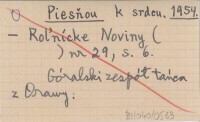 O Piesňou k srdcu. 1954.
— Roľnícke Noviny (
) nr 29, s. 6.
Góralski zespół tańca
z Orawy.